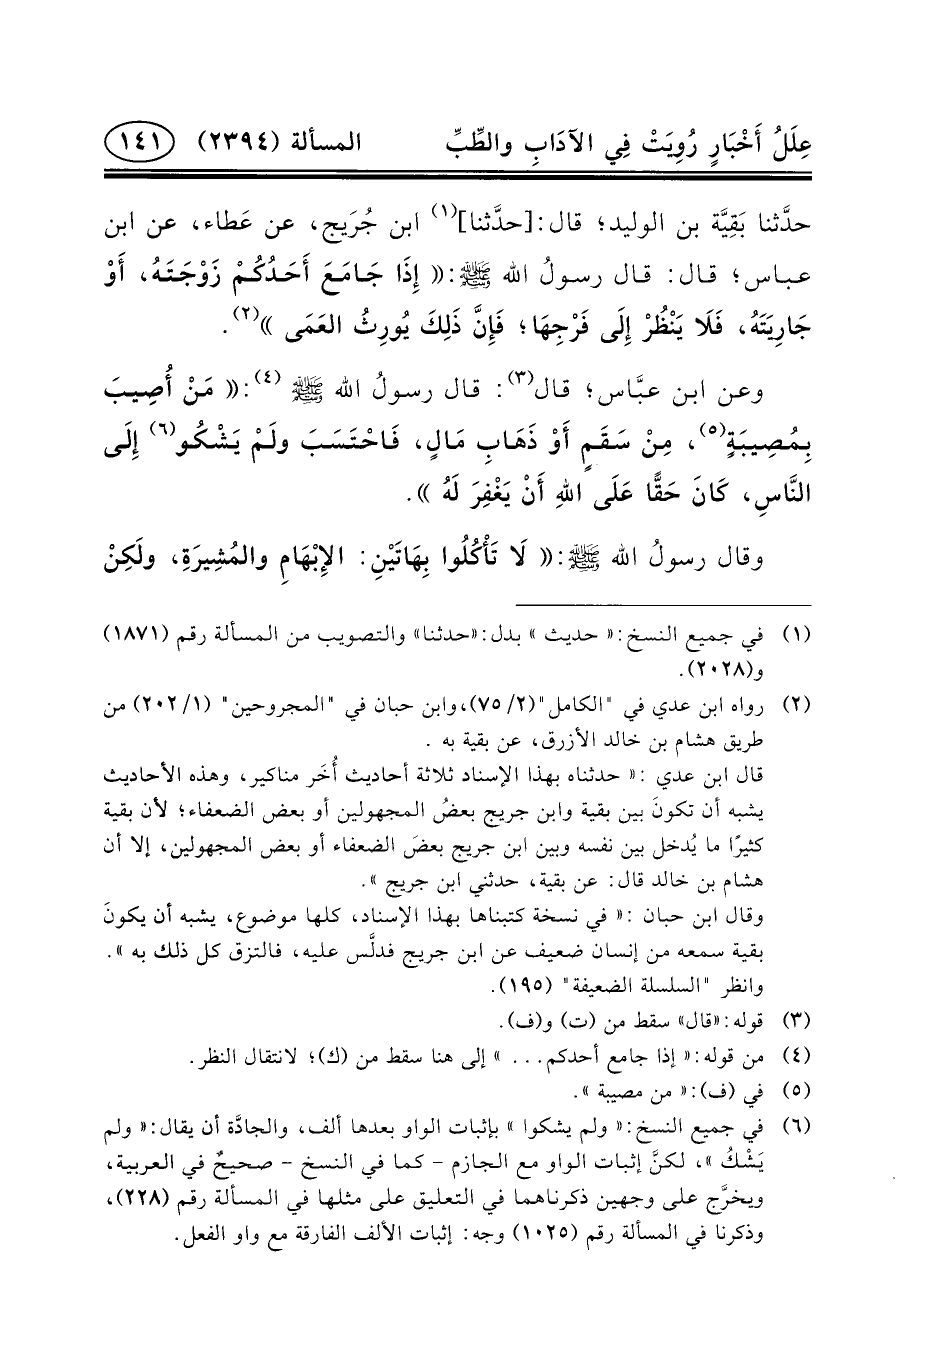 عِلَلُ أَخْبَارٍ رُوِيَتْ فِي الآدَابِ والطِّبِّ المسألة (٢٣٩٤) ١٤١
حدَّثنا بَقِيَّة بن الوليد؛ قال:[حدَّثنا](١) ابن جُرَيج، عن عَطاء، عن ابن
عباس؛ قال: قال رسولُ الله ﷺ:« إِذَا جَامَعَ أَحَدُكُمْ زَوْجَتَهُ، أَوْ
جَارِيَتَهُ، فَلَا يَنْظُرْ إِلَى فَرْجِهَا؛ فَإِنَّ ذَلِكَ يُورِثُ العَمَى »(٢).
وعن ابن عبَّاس؛ قال(٣): قال رسولُ الله ﷺ (٤):« مَنْ أُصِيبَ
بِمُصِيبَةٍ(٥)، مِنْ سَقَمٍ أَوْ ذَهَابِ مَالٍ، فَاحْتَسَبَ ولَمْ يَشْكُو(٦) إِلَى
النَّاسِ، كَانَ حَقًّا عَلَى اللهِ أَنْ يَغْفِرَ لَهُ ».
وقال رسولُ الله ﷺ:« لَا تَأْكُلُوا بِهَاتَيْنِ: الإِبْهَامِ والمُشِيرَةِ، ولَكِنْ
(١) في جميع النسخ:« حديث » بدل:«حدثنا» والتصويب من المسألة رقم (١٨٧١)
و(٢٠٢٨).
(٢) رواه ابن عدي في "الكامل"(٢/ ٧٥)،وابن حبان في "المجروحين" (١/ ٢٠٢) من
طريق هشام بن خالد الأزرق، عن بقية به .
قال ابن عدي :« حدثناه بهذا الإسناد ثلاثة أحاديث أُخَر مناكير، وهذه الأحاديث
يشبه أن تكونَ بين بقية وابن جريج بعضُ المجهولين أو بعض الضعفاء؛ لأن بقية
كثيرًا ما يُدخل بين نفسه وبين ابن جريج بعضَ الضعفاء أو بعض المجهولين، إلا أن
هشام بن خالد قال: عن بقية، حدثني ابن جريج ».
وقال ابن حبان :« في نسخة كتبناها بهذا الإسناد، كلها موضوع، يشبه أن يكونَ
بقية سمعه من إنسان ضعيف عن ابن جريج فدلَّس عليه، فالتزق كل ذلك به ».
وانظر "السلسلة الضعيفة" (١٩٥).
(٣) قوله:«قال» سقط من (ت) و(ف).
(٤) من قوله:« إذا جامع أحدكم . . . » إلى هنا سقط من (ك)؛ لانتقال النظر.
(٥) في (ف):« من مصيبة ».
(٦) في جميع النسخ:« ولم يشكوا » بإثبات الواو بعدها ألف، والجادَّة أن يقال:« ولم
يَشْكُ »، لكنَّ إثبات الواو مع الجازم - كما في النسخ - صحيحٌ في العربية،
ويخرَّج على وجهين ذكرناهما في التعليق على مثلها في المسألة رقم (٢٢٨)،
وذكرنا في المسألة رقم (١٠٢٥) وجه: إثبات الألف الفارقة مع واو الفعل.